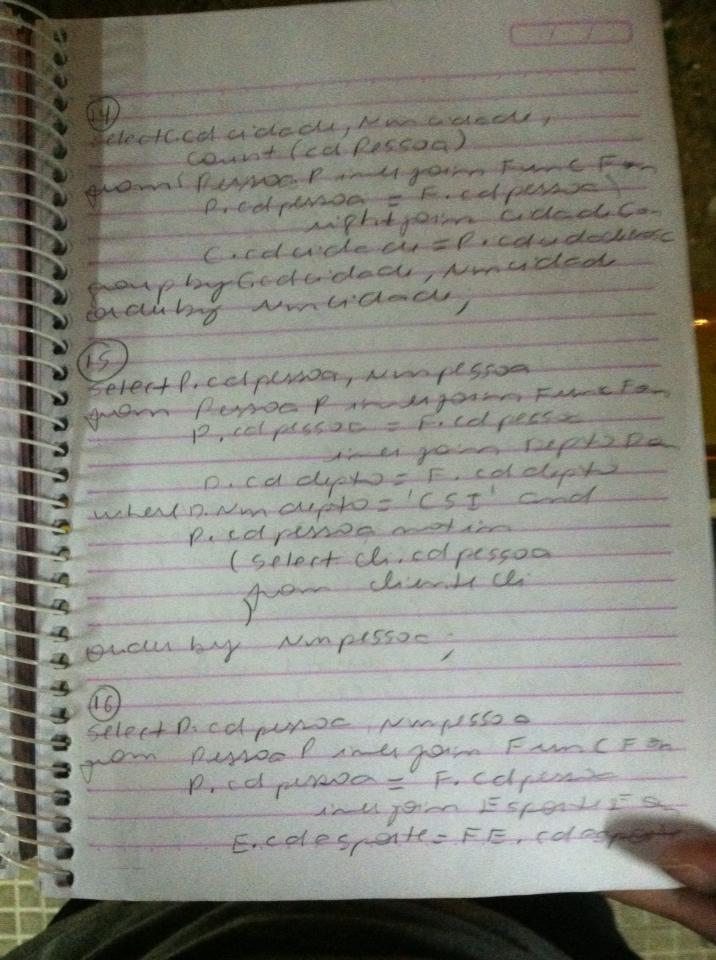 14
Select C.cdcidade, Nmcidade,
count (cdPessoa)
from (Pessoa P inner join Func F on
P.cdpessoa = F.cdpessoa)
right join Cidade C on
C.cdcidade = P.cdcidade
group by C.cdcidade, Nmcidade
order by Nmcidade;
15
Select P.cdpessoa, Nmpessoa
from Pessoa P inner join Func F on
P.cdpessoa = F.cdpessoa
inner join Depto D on
D.cddepto = F.cddepto
where D.Nmdepto = 'CSI' and
P.cdpessoa not in
(select cli.cdpessoa
from cliente cli
)
order by Nmpessoa;
16
Select P.cdpessoa, Nmpessoa
from Pessoa P inner join Func F on
P.cdpessoa = F.cdpessoa
inner join Esporte E on
E.cdesporte = FE.cdesporte